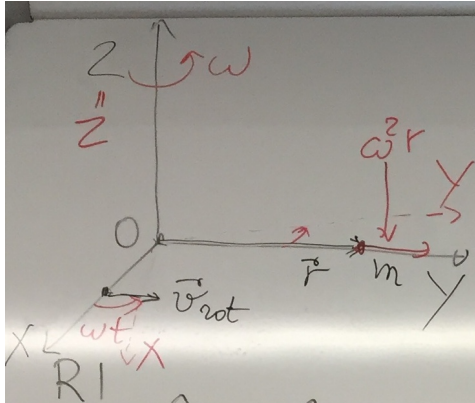 Z ω
Z"
ω²r
Y
O r⃗ m
Y
v⃗rot
ωt
X X
R1